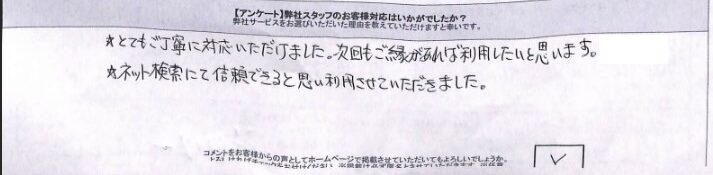 【アンケート】弊社スタッフのお客様対応はいかがでしたか？
弊社サービスをお選びいただいた理由を教えていただけますと幸いです。
☆とてもご丁寧に対応いただけました。次回もご縁があれば利用したいと思います。
☆ネット検索にて信頼できると思い利用させていただきました。
コメントをお客様からの声としてホームページで掲載させていただいてもよろしいでしょうか。